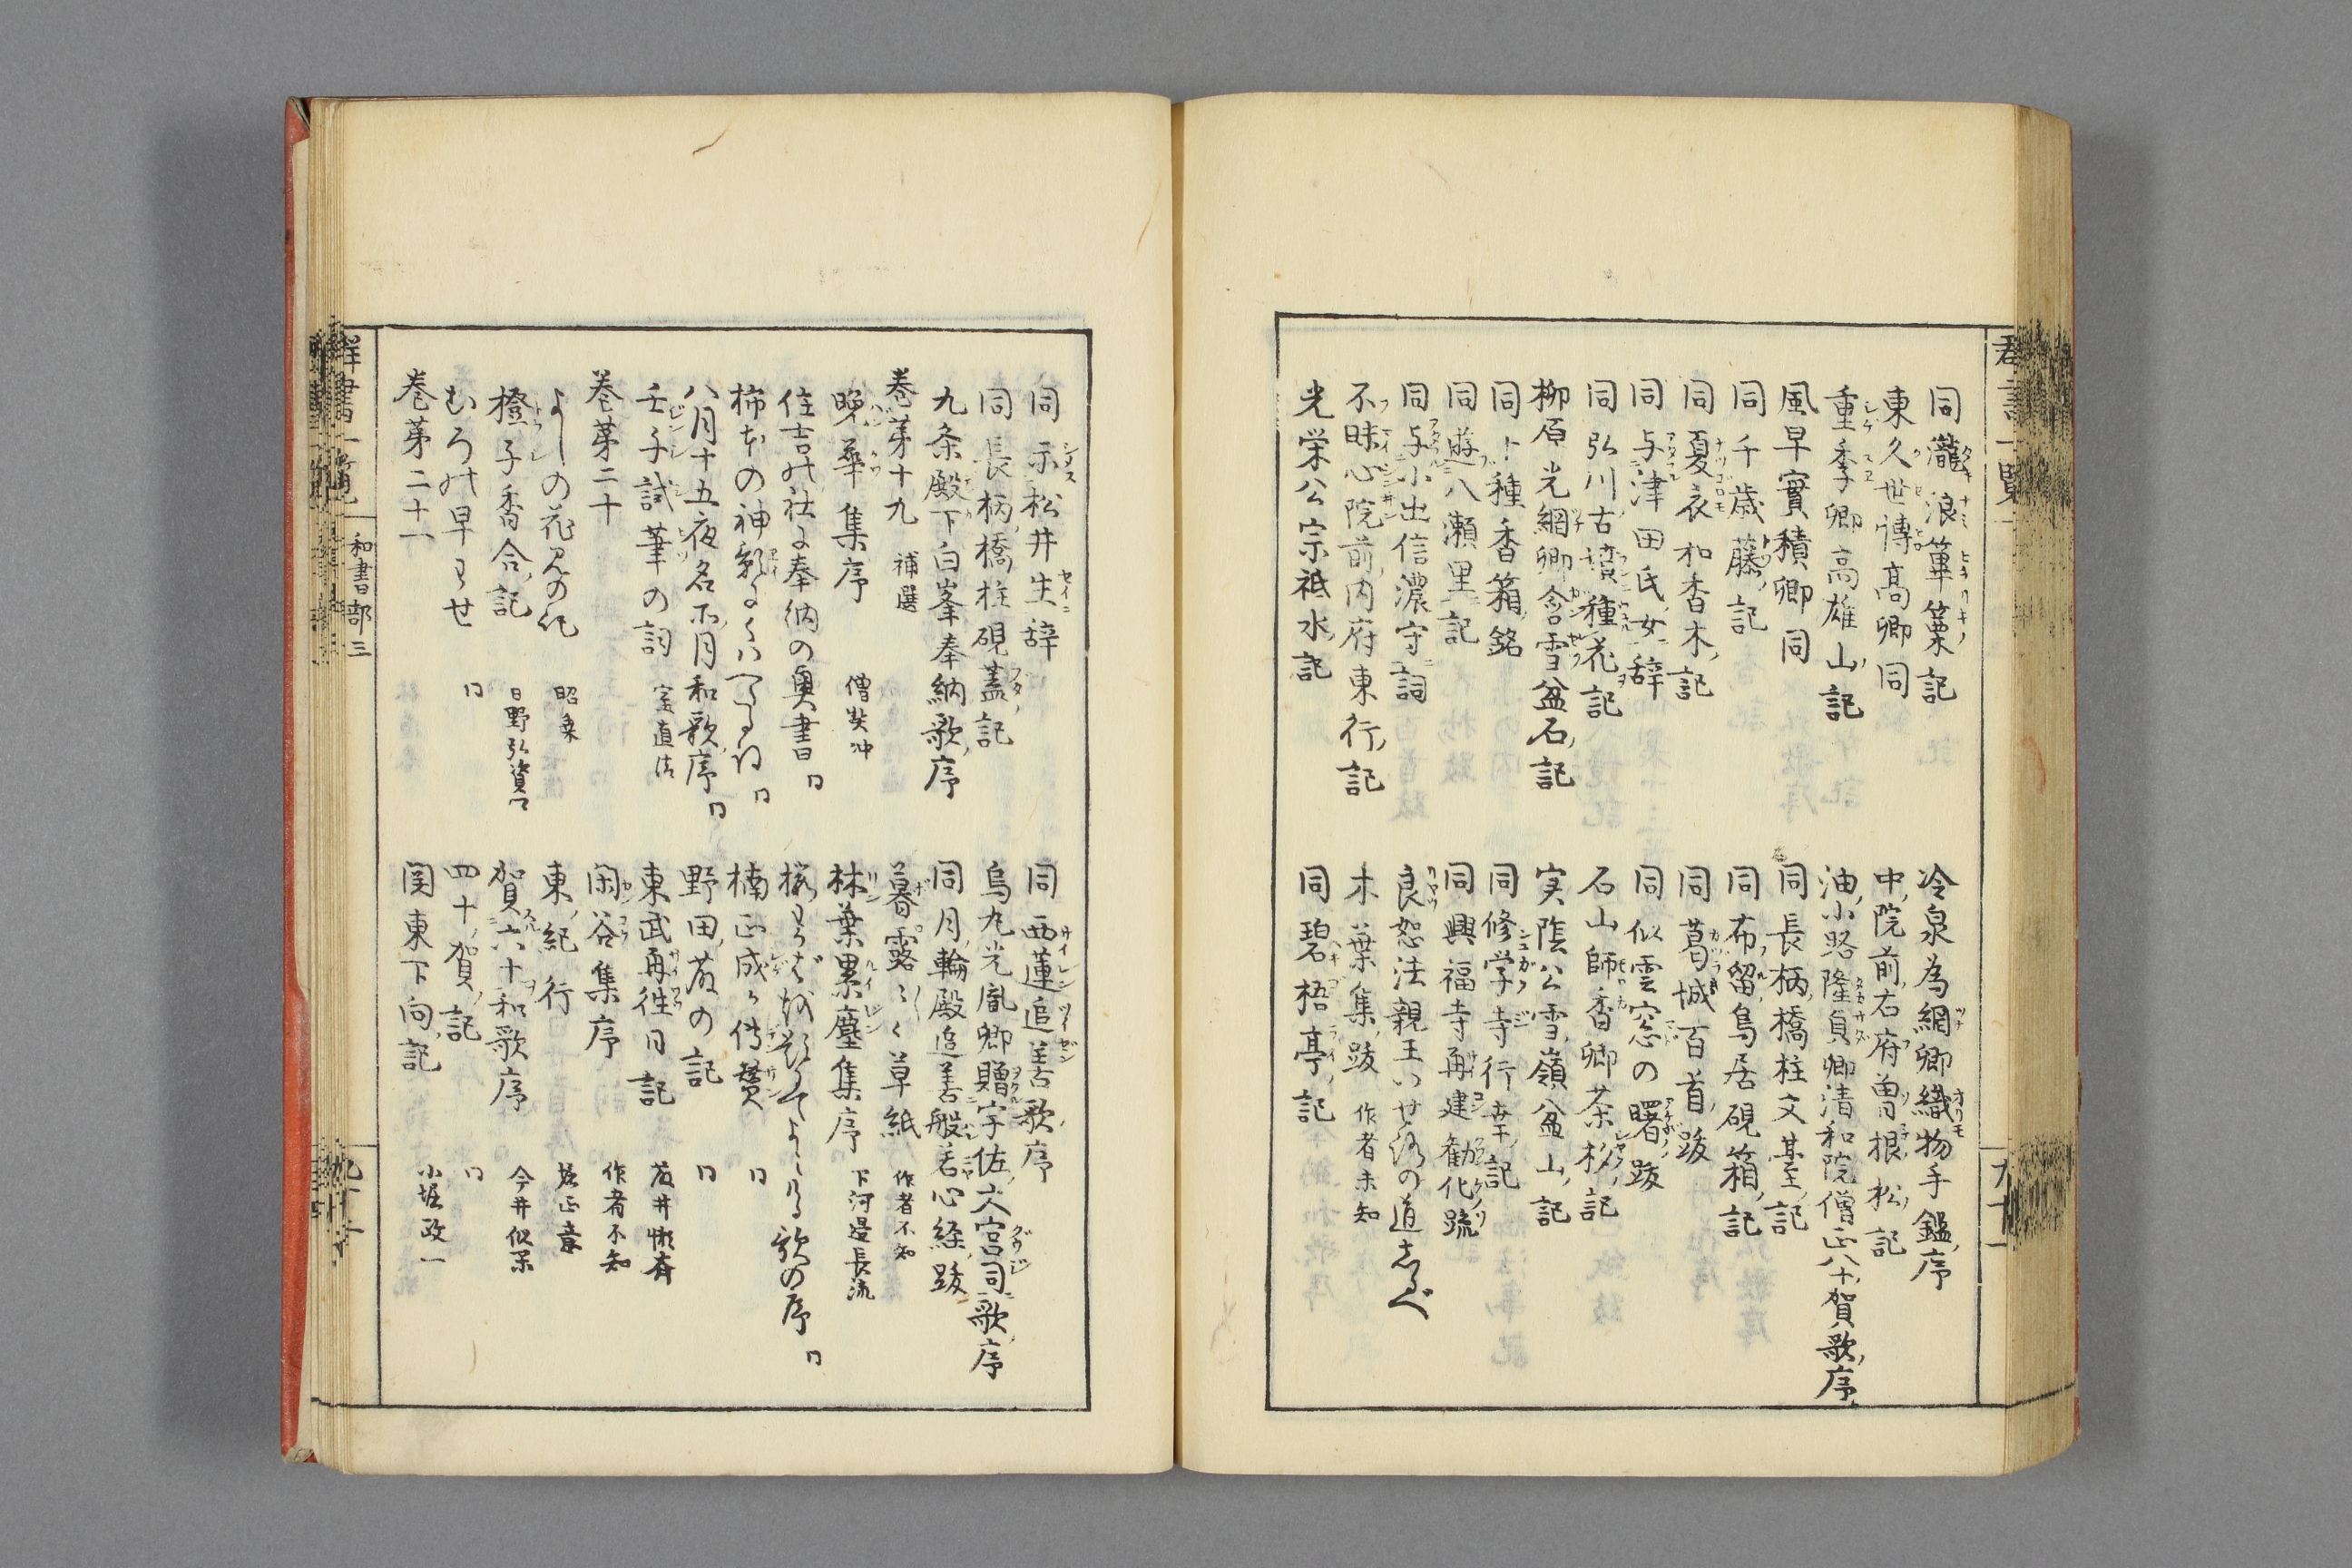 同瀧浪篳篥記
冷泉為綱卿織物手鑑序
東久世博高卿同
中院前右府曽根松記
重季卿高雄山記
油小路隆貞卿清和院僧正八十賀歌序
風早實積卿同
同長柄橋柱文臺記
同千歳藤記
同布留鳥居硯箱記
同夏衣和香木記
同葛城百首跋
同与津田氏女辞
同似雲窓の曙跋
同弘川古墳種花記
石山師香卿茶杓記
柳原光綱卿含雪盆石記
実蔭公雪嶺盆山記
同十種香箱銘
同修学寺行幸記
同遊八瀬里記
同興福寺再建勧化疏
同与小出信濃守詞
良恕法親王いせ路の道志るべ
不昧心院前内府東行記
木葉集跋 作者未知
光栄公宗祗水記
同碧梧亭記
同示松井生辞
同西蓮追善歌序
同長柄橋柱硯蓋記
烏丸光胤卿贈宇佐大宮司歌序
九条殿下白峯奉納歌序
同月輪殿追善般若心経跋
巻第十九 補選
暮露〳〵草紙 作者不知
晩華集序 僧契冲
林葉累塵集序 下河邊長流
住吉社奉納の奥書 同
歌の序 同
楠正成伝賛 同
八月十五夜名所月和歌序 同
野田藤の記 同
壬子試筆の詞 直清
東武再往日記
巻第二十
閑谷集序 作者不知
よしの花見の記 昭乗
東紀行
橙子香合記 日野弘資
賀六十和歌序 今井似閑
むろの早わせ 同
四十賀記 同
巻第二十一
関東下向記 小堀政一
群書一覧 和書部三